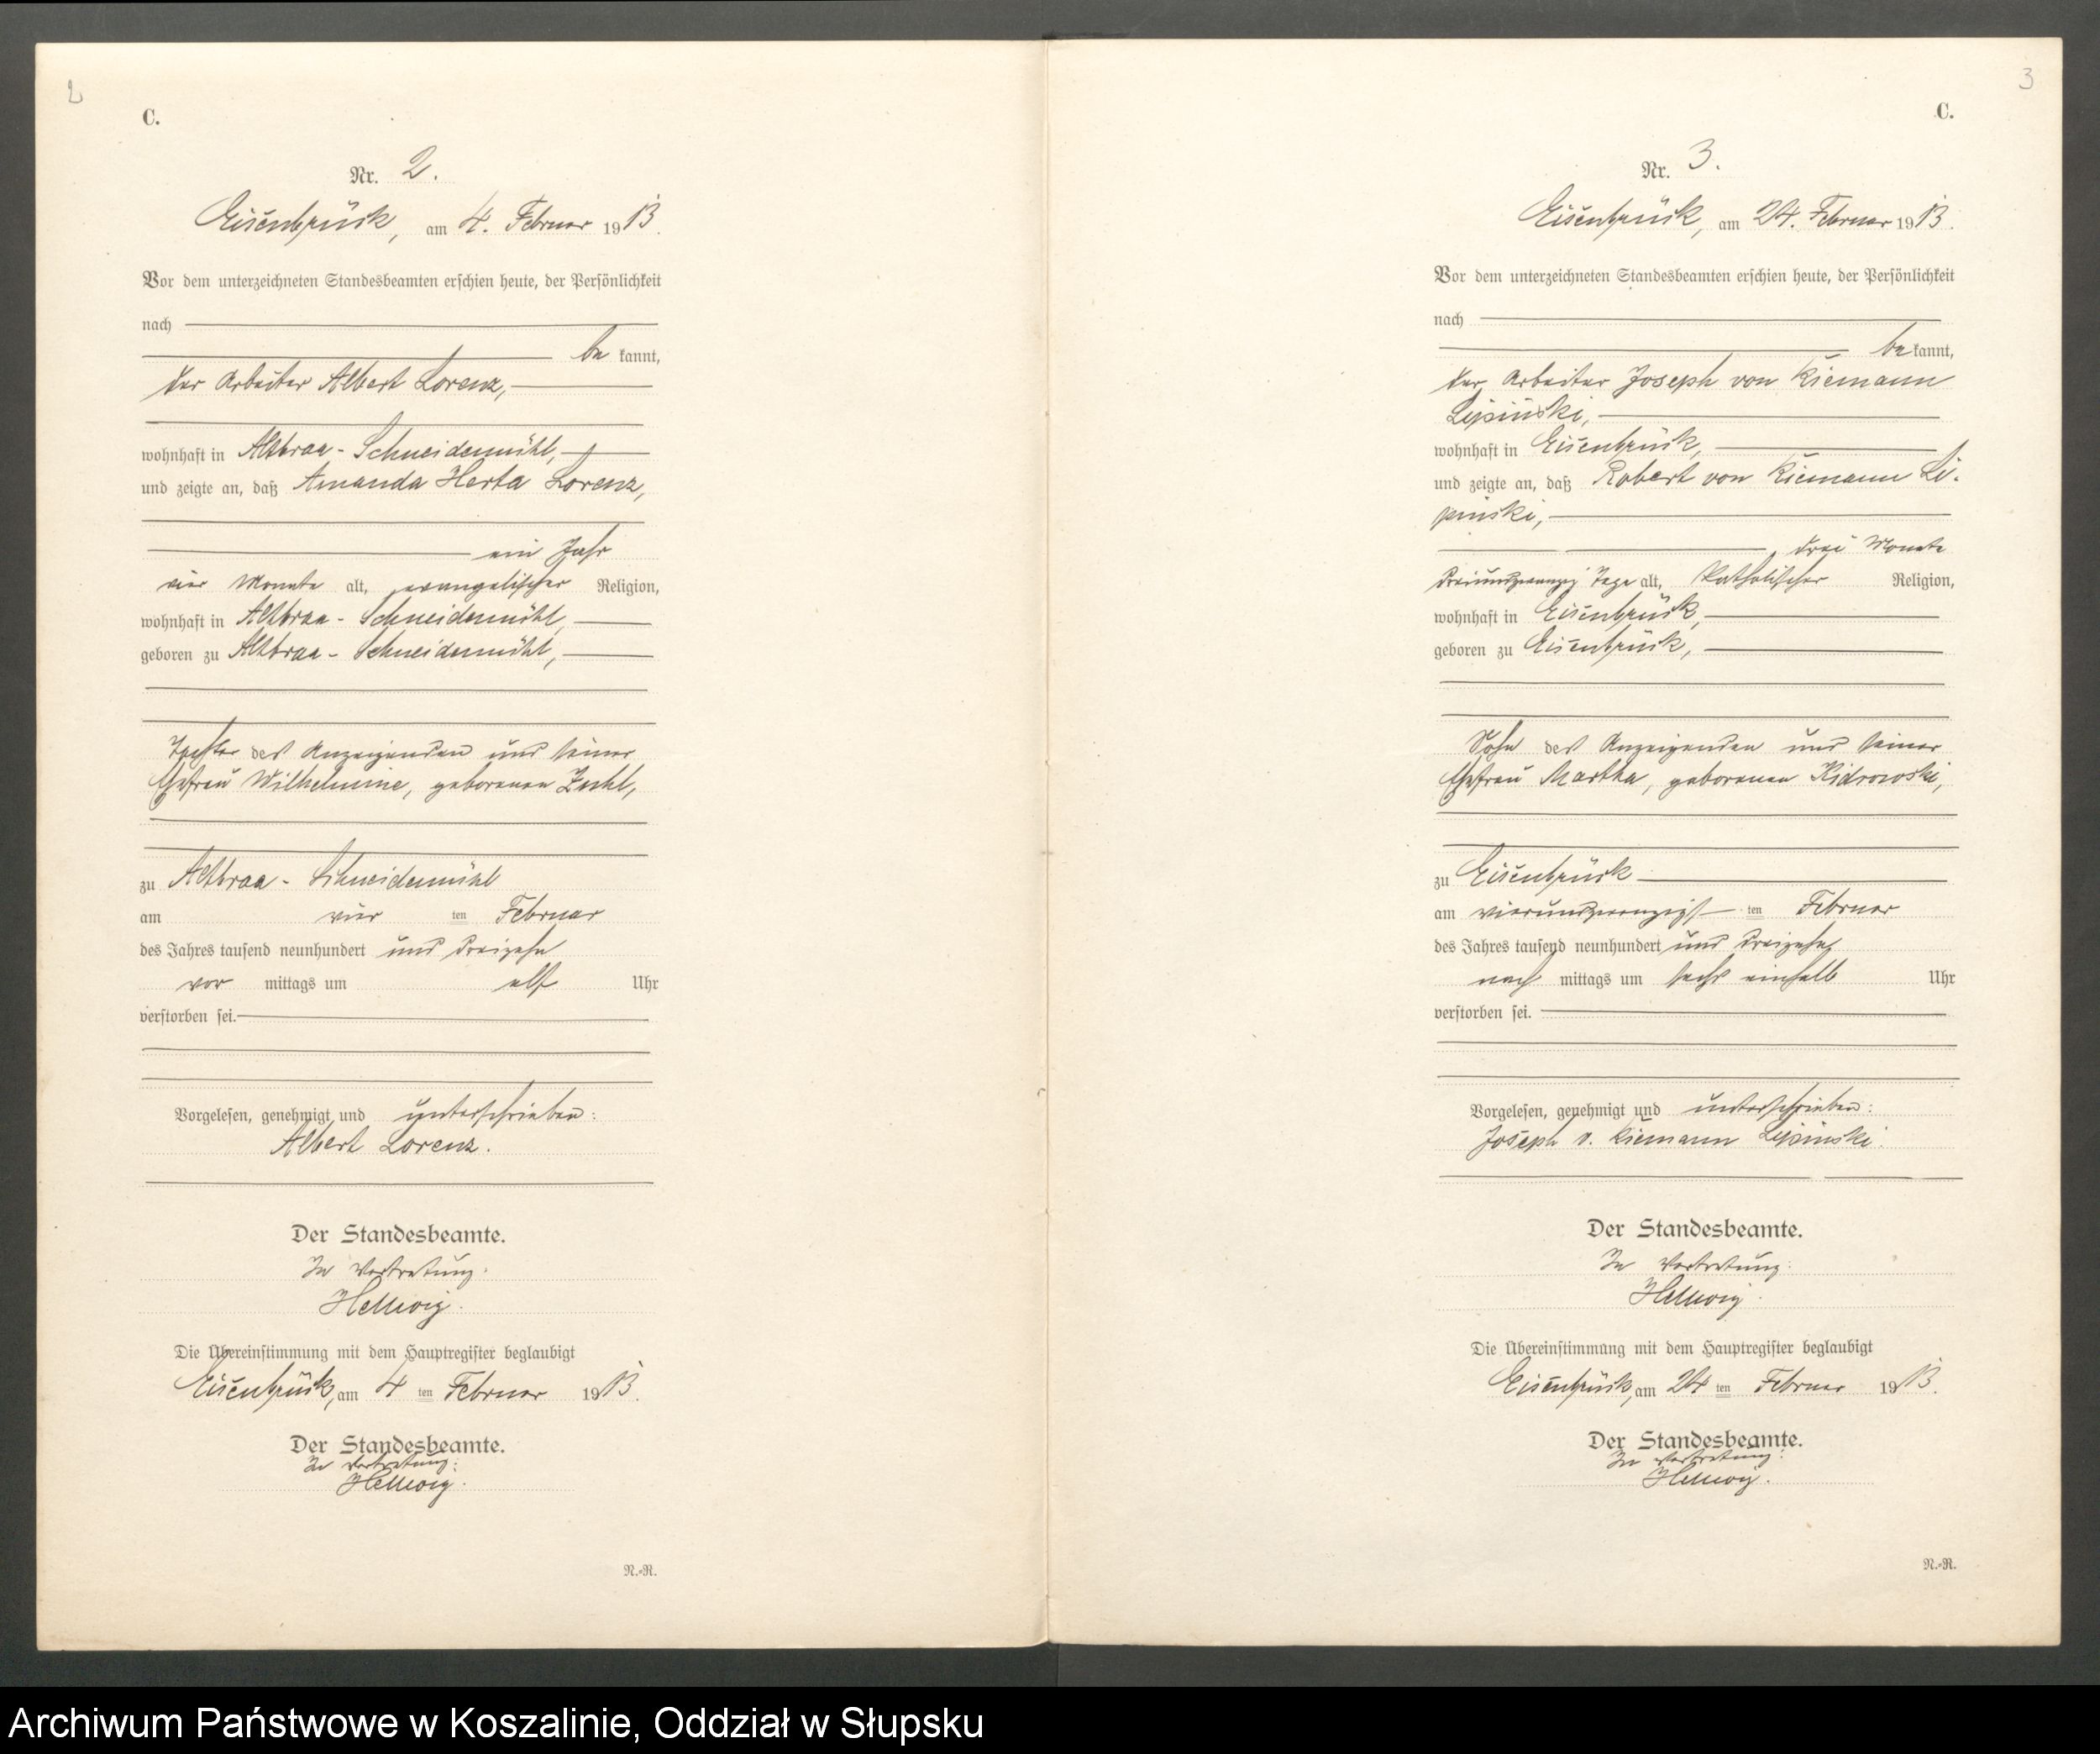 2
C.
Nr. 2.
Eisenbrück, am 4. Februar 1913.
Vor dem unterzeichneten Standesbeamten erschien heute, der Persönlichkeit
nach
be kannt,
der Arbeiter Albert Lorenz,
wohnhaft in Altbraa-Schneidemühl,
und zeigte an, daß Amanda Herta Lorenz,
ein Jahr
vier Monate alt, evangelischer Religion,
wohnhaft in Altbraa-Schneidemühl,
geboren zu Altbraa-Schneidemühl,
Tochter des Anzeigenden und seiner
Ehefrau Wilhelmine, geborenen
zu Altbraa-Schneidemühl
am vier ten Februar
des Jahres tausend neunhundert und dreizehn
vor mittags um elf Uhr
verstorben sei.
Vorgelesen, genehmigt und unterschrieben:
Albert Lorenz.
Der Standesbeamte.
In Vertretung:
Hellwig.
Die Übereinstimmung mit dem Hauptregister beglaubigt
Eisenbrück, am 4 ten Februar 1913.
Der Standesbeamte.
In Vertretung:
Hellwig.
N.=R.
3
C.
Nr. 3.
Eisenbrück, am 24. Februar 1913.
Vor dem unterzeichneten Standesbeamten erschien heute, der Persönlichkeit
nach
be kannt,
der Arbeiter Joseph von Kiemann
Lipinski,
wohnhaft in Eisenbrück,
und zeigte an, daß Robert von Kiemann Li-
pinski,
drei Monate
dreiundzwanzig Tage alt, katholischer Religion,
wohnhaft in Eisenbrück,
geboren zu Eisenbrück,
Sohn des Anzeigenden und seiner
Ehefrau Martha, geborenen Kidrowski,
zu Eisenbrück
am vierundzwanzigs ten Februar
des Jahres tausend neunhundert und dreizehn
nach mittags um sechs einhalb Uhr
verstorben sei.
Vorgelesen, genehmigt und unterschrieben:
Joseph v. Kiemann Lipinski.
Der Standesbeamte.
In Vertretung:
Hellwig.
Die Übereinstimmung mit dem Hauptregister beglaubigt
Eisenbrück, am 24 ten Februar 1913.
Der Standesbeamte.
In Vertretung:
Hellwig.
N.=R.
Archiwum Państwowe w Koszalinie, Oddział w Słupsku